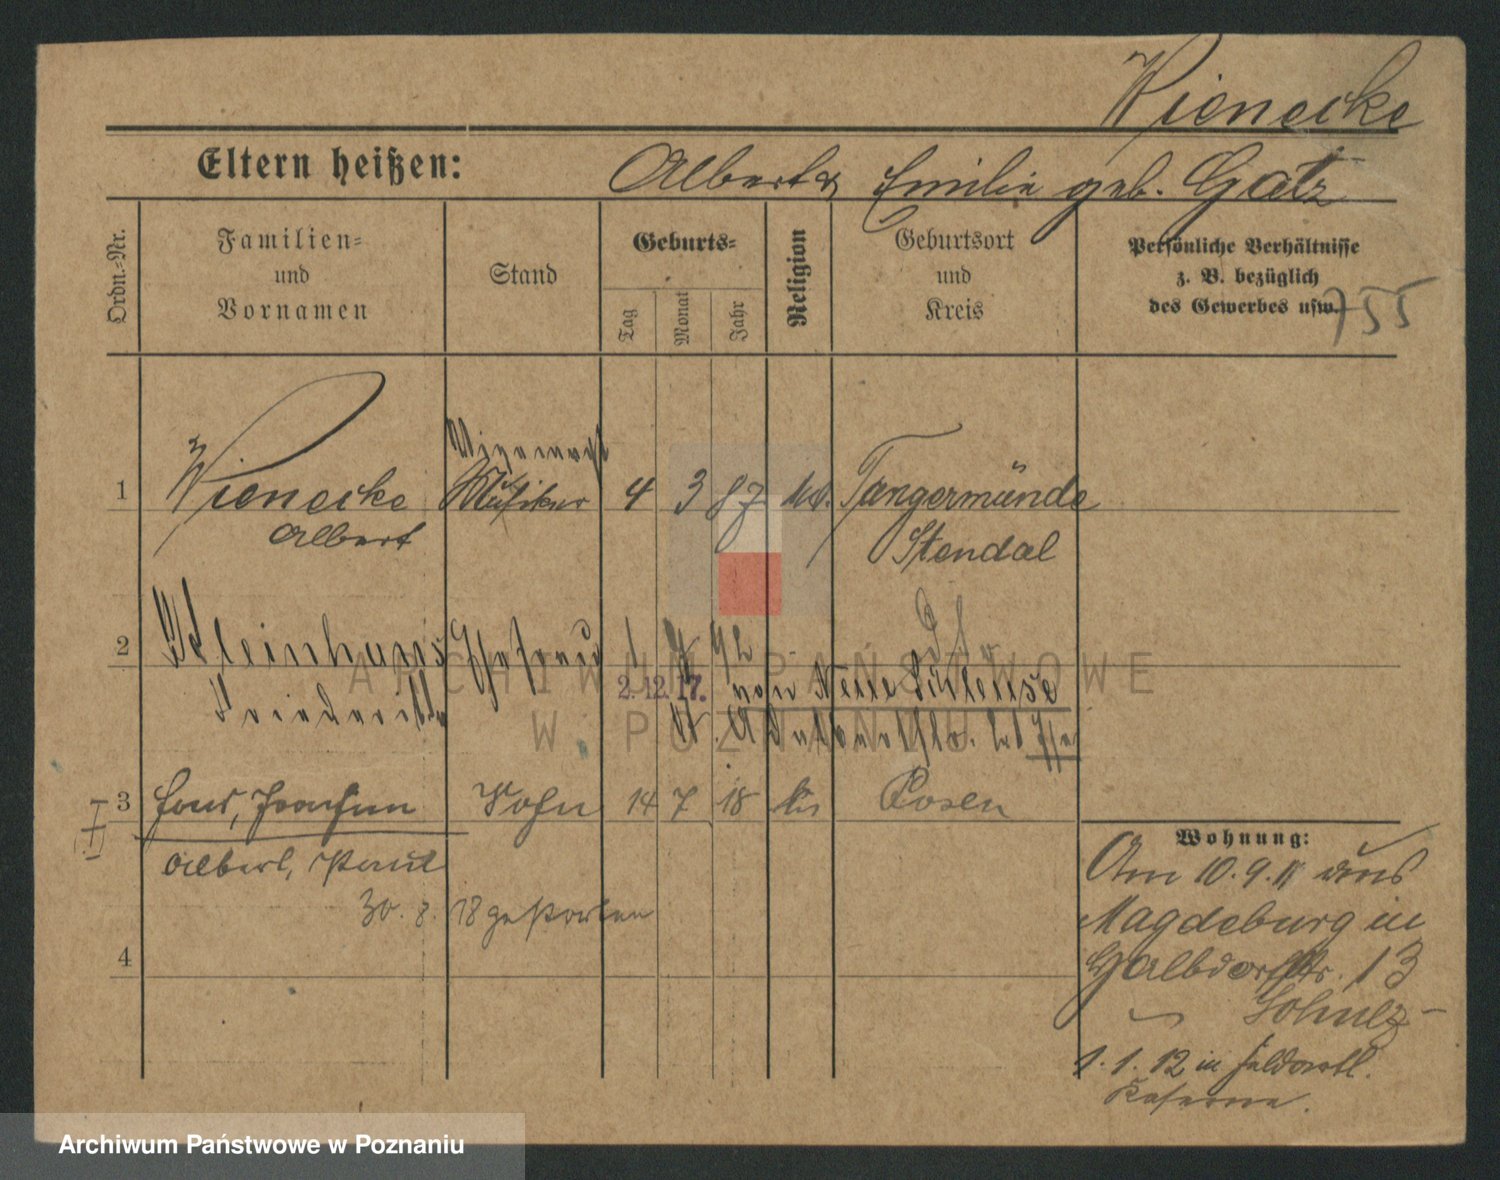 Wienecke
Eltern heißen: Albert & Emilie geb. Gatz
Ordn.-Nr.
Familien- und Vornamen
Stand
Geburts-
Tag
Monat
Jahr
Religion
Geburtsort und Kreis
Persönliche Verhältnisse z. B. bezüglich des Gewerbes usw.
755
1 Wienecke Musiker 4 3 87 Tangermünde
Albert Stendal
2 Kleinhans Ehefrau 1 92
2.12.17. von Neue
3 Joachim Sohn 14 7 18 Posen
Albert, Paul
30. 8. 18 gestorben
4
Wohnung:
Am 10.9.11 aus
Magdeburg in
13
Schulz
1. 1. 12 in
Kaserne.
ARCHIWUM PAŃSTWOWE
W POZNANIU
Archiwum Państwowe w Poznaniu